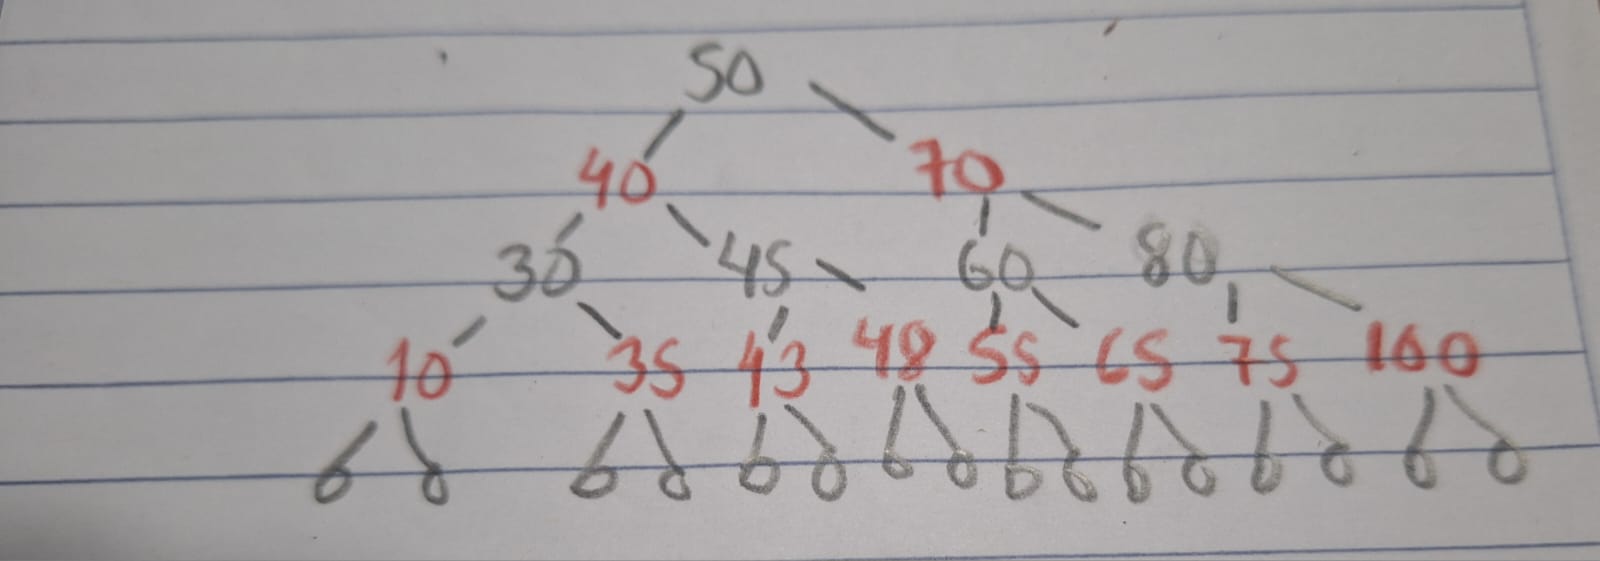 50
40 70
30 45 60 80
10 35 43 48 55 65 75 100